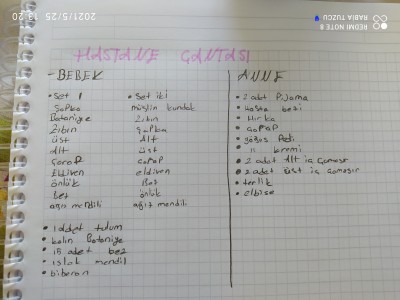 2021/5/25 13:20
REDMI NOTE 9
RABIA TUZCU
HASTANE ÇANTASI
- BEBEK
• Set 1
Şapka
Battaniye
Zıbın
üst
Alt
Çorap
Eldiven
önlük
bez
ağız mendili
• Set iki
müslin bundak
Zıbın
Şapka
Alt
üst
Çorap
eldiven
Bez
önlük
ağız mendili
• 1 adet tulum
• kalın Battaniye
• 15 adet bez
• ıslak mendil
• biberon
ANNE
• 2 adet Pijama
• Hasta bezi
• Hırka
• çorap
• göğüs Pedi
• " kremi
• 2 adet Alt iç çamaşır
• 2 adet üst iç çamaşır
• terlik
• elbise